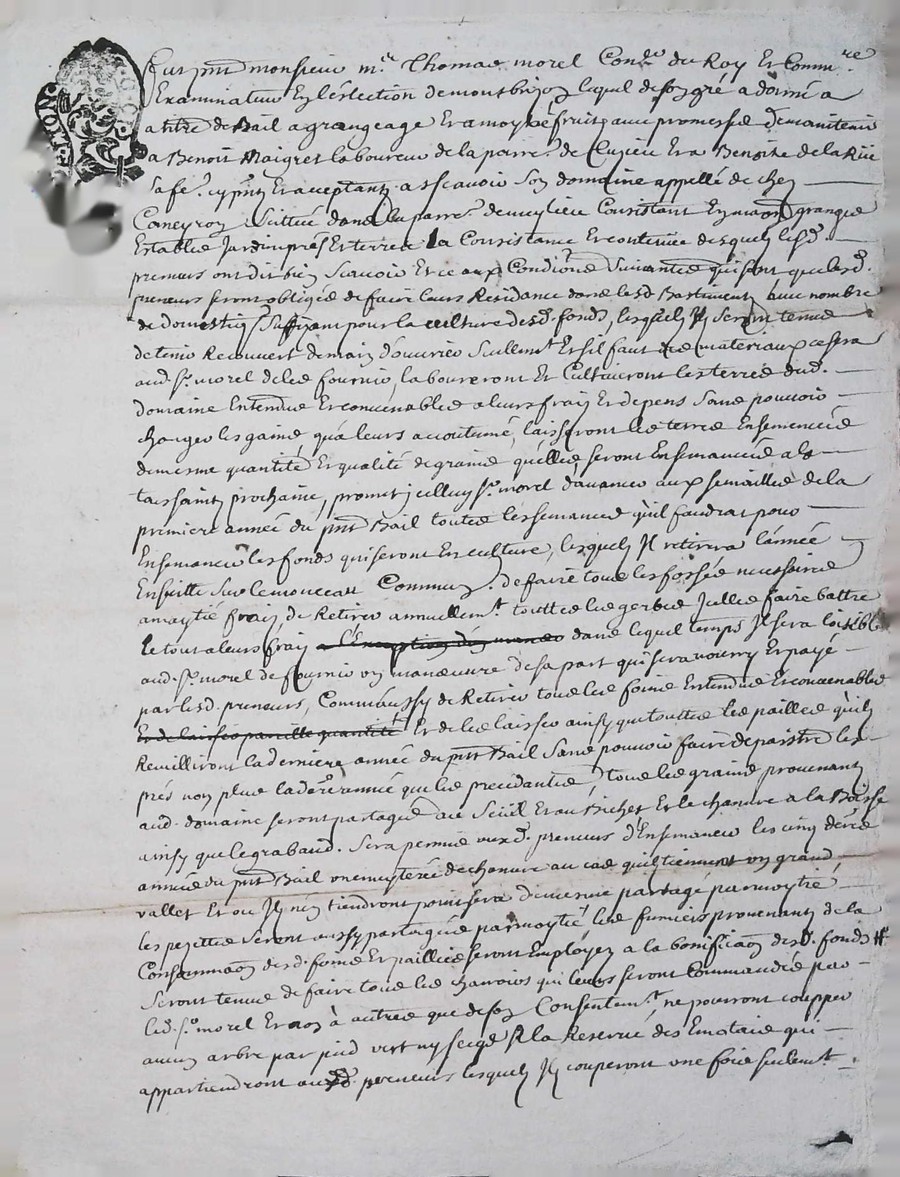 fut pnt monsieur me. Thomas morel Conser du Roy Et Commre
Examinateur En l'eslection de montbrizon lequel de son gré a donné a
a titre de Bail a grangeage Et a moytié fruits avec promesse de maintenir
a Benoit Maigret laboureur de la parre. de Cuzieu Et a Benoite de la Rüe
sa fe. cy pnts Et aceptants a scavoir son domaine appellé de chez
Caneyron scittué dans la parre. de Consistant En maon grange
Establie Jardin prés Et terres la Consistance Et contenue desquels lesd.
preneurs ont dit bien scavoir Et ce aux Conditions suivantes qui sont que lesd.
preneurs seront obligés de faire leurs Residance dans lesd Bastiments avec nombre
de domestiqs suffizant pour la culture desd. fonds, lesquels Ils seront tenus
de tenir Recouvert de main d'ouvrier seullemt. Et s'il faut des materiaux ce sera
aud. sr. morel de les fournir, laboureront Et Cultiveront les terres dud.
domaine Entendue Et convenables a leurs frais Et depens sans pouvoir
charger les gains qu'a leurs accoutumé, laisseront les terres Ensemencées
de mesme quantité Et qualité de grains qu'elles seront Ensemancées a la
toussaints prochaine, promet icelluy sr. morel d'avancer aux semailles de la
premiere année du pnt Bail toutes les semances qu'il faudrat pour
Ensemancer les fonds qui seront En culture, lesquels Il retirera l'année
Ensuitte sur le monceau Commun, de faire tous les fossés necessaires
a moytié frais de Retirer annuellemt. touttes les gerbes Icelles faire battre
Le tout a leurs frais a l'Exception d'un manoe dans lequel temps Il sera loisible
aud. sr. morel de fournir un manoeuvre de sa part qui sera nourry Et payé
par lesd. preneurs, Comme aussy de Retirer tous les foins Entendue Et convenables
Et de laisser pareille quantité Et de les laisser ainsy que touttes les pailles qu'ils
Reuilliront la derniere année du pnt Bail sans pouvoir faire depaistre les
prés non plus la dere. année que les precedantes, tous les grains provenants
aud. domaine seront partagés au Seüil Et au Bichet Et le chanvre a la Boisse
ainsy que le grabaud. sera permis auxd. preneurs d'Ensemancer les cinq deres
années du pnt Bail une meyterée de chanvre au cas qu'ils tiennent un grand
vallet Et ou Ils n'en tiendront point sera de mesme partagé par moytié
les pezettes seront aussy partagées par moytié, les fumiers provenants de la
Consommaon desd. foins Et pailles seront Employez a la bonificaon desd. fonds
seront tenus de faire tous les charrois qui leurs seront Commandés par
led. sr. morel Et non à autres que de son Consentemt. ne pourront coupper
aucun arbre par pied vert ny secqs A la Reserve des qui
appartiendront auxd. preneurs lesquels Ils couperont une fois seulemt.